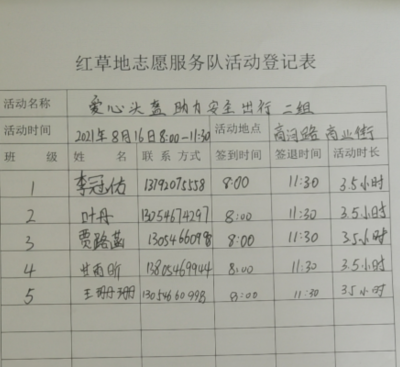 红草地志愿服务队活动登记表
活动名称 爱心头盔 助力安全出行 二组
活动时间 2021年8月16日8:00-11:30 活动地点 商河路 商业街
班 级 姓 名 联 系 方式 签到时间 签退时间 活动时长
1 李冠佑 13792075558 8:00 11:30 3.5小时
2 叶丹 13054674297 8:00 11:30 3.5小时
3 贾路 8:00 11:30 3.5小时
4 13805469944 8:00 11:30 3.5小时
5 王珊珊 8:00 11:30 3.5小时